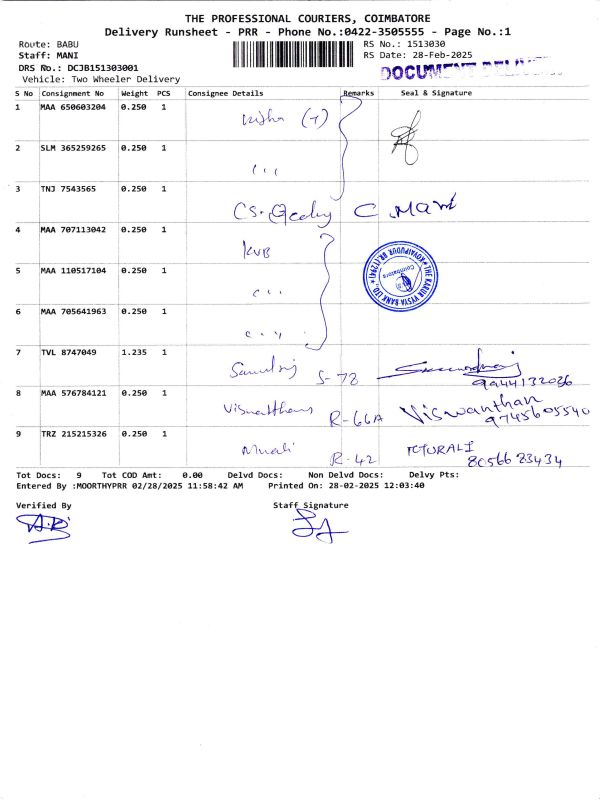 THE PROFESSIONAL COURIERS, COIMBATORE
Delivery Runsheet - PRR - Phone No.:0422-3505555 - Page No.:1
Route: BABU RS No.: 1513030
Staff: MANI RS Date: 28-Feb-2025
DRS No.: DCJB151303001
DOCUMENT
Vehicle: Two Wheeler Delivery
S No Consignment No Weight PCS Consignee Details Remarks Seal & Signature
1 MAA 650603204 0.250 1
2 SLM 365259265 0.250 1
3 TNJ 7543565 0.250 1 C MANI
4 MAA 707113042 0.250 1 KVB
5 MAA 110517104 0.250 1
THE KARUR VYSYA BANK LTD. Coimbatore
6 MAA 705641963 0.250 1
7 TVL 8747049 1.235 1 S-72
9944132036
8 MAA 576784121 0.250 1 Viswanthan R-66A Viswanthan
9745605540
9 TRZ 215215326 0.250 1 Murali R-42 MURALI
8056683434
Tot Docs: 9 Tot COD Amt: 0.00 Delvd Docs: Non Delvd Docs: Delvy Pts:
Entered By :MOORTHYPRR 02/28/2025 11:58:42 AM Printed On: 28-02-2025 12:03:40
Verified By Staff Signature